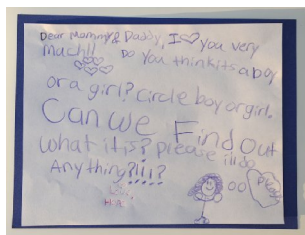 Dear Mommy & Daddy, I ♡ you very
much!! Do you think its a boy
or a girl? Circle boy or girl.
Can we Find Out
what it is? please ill do
Any thing?!!!?